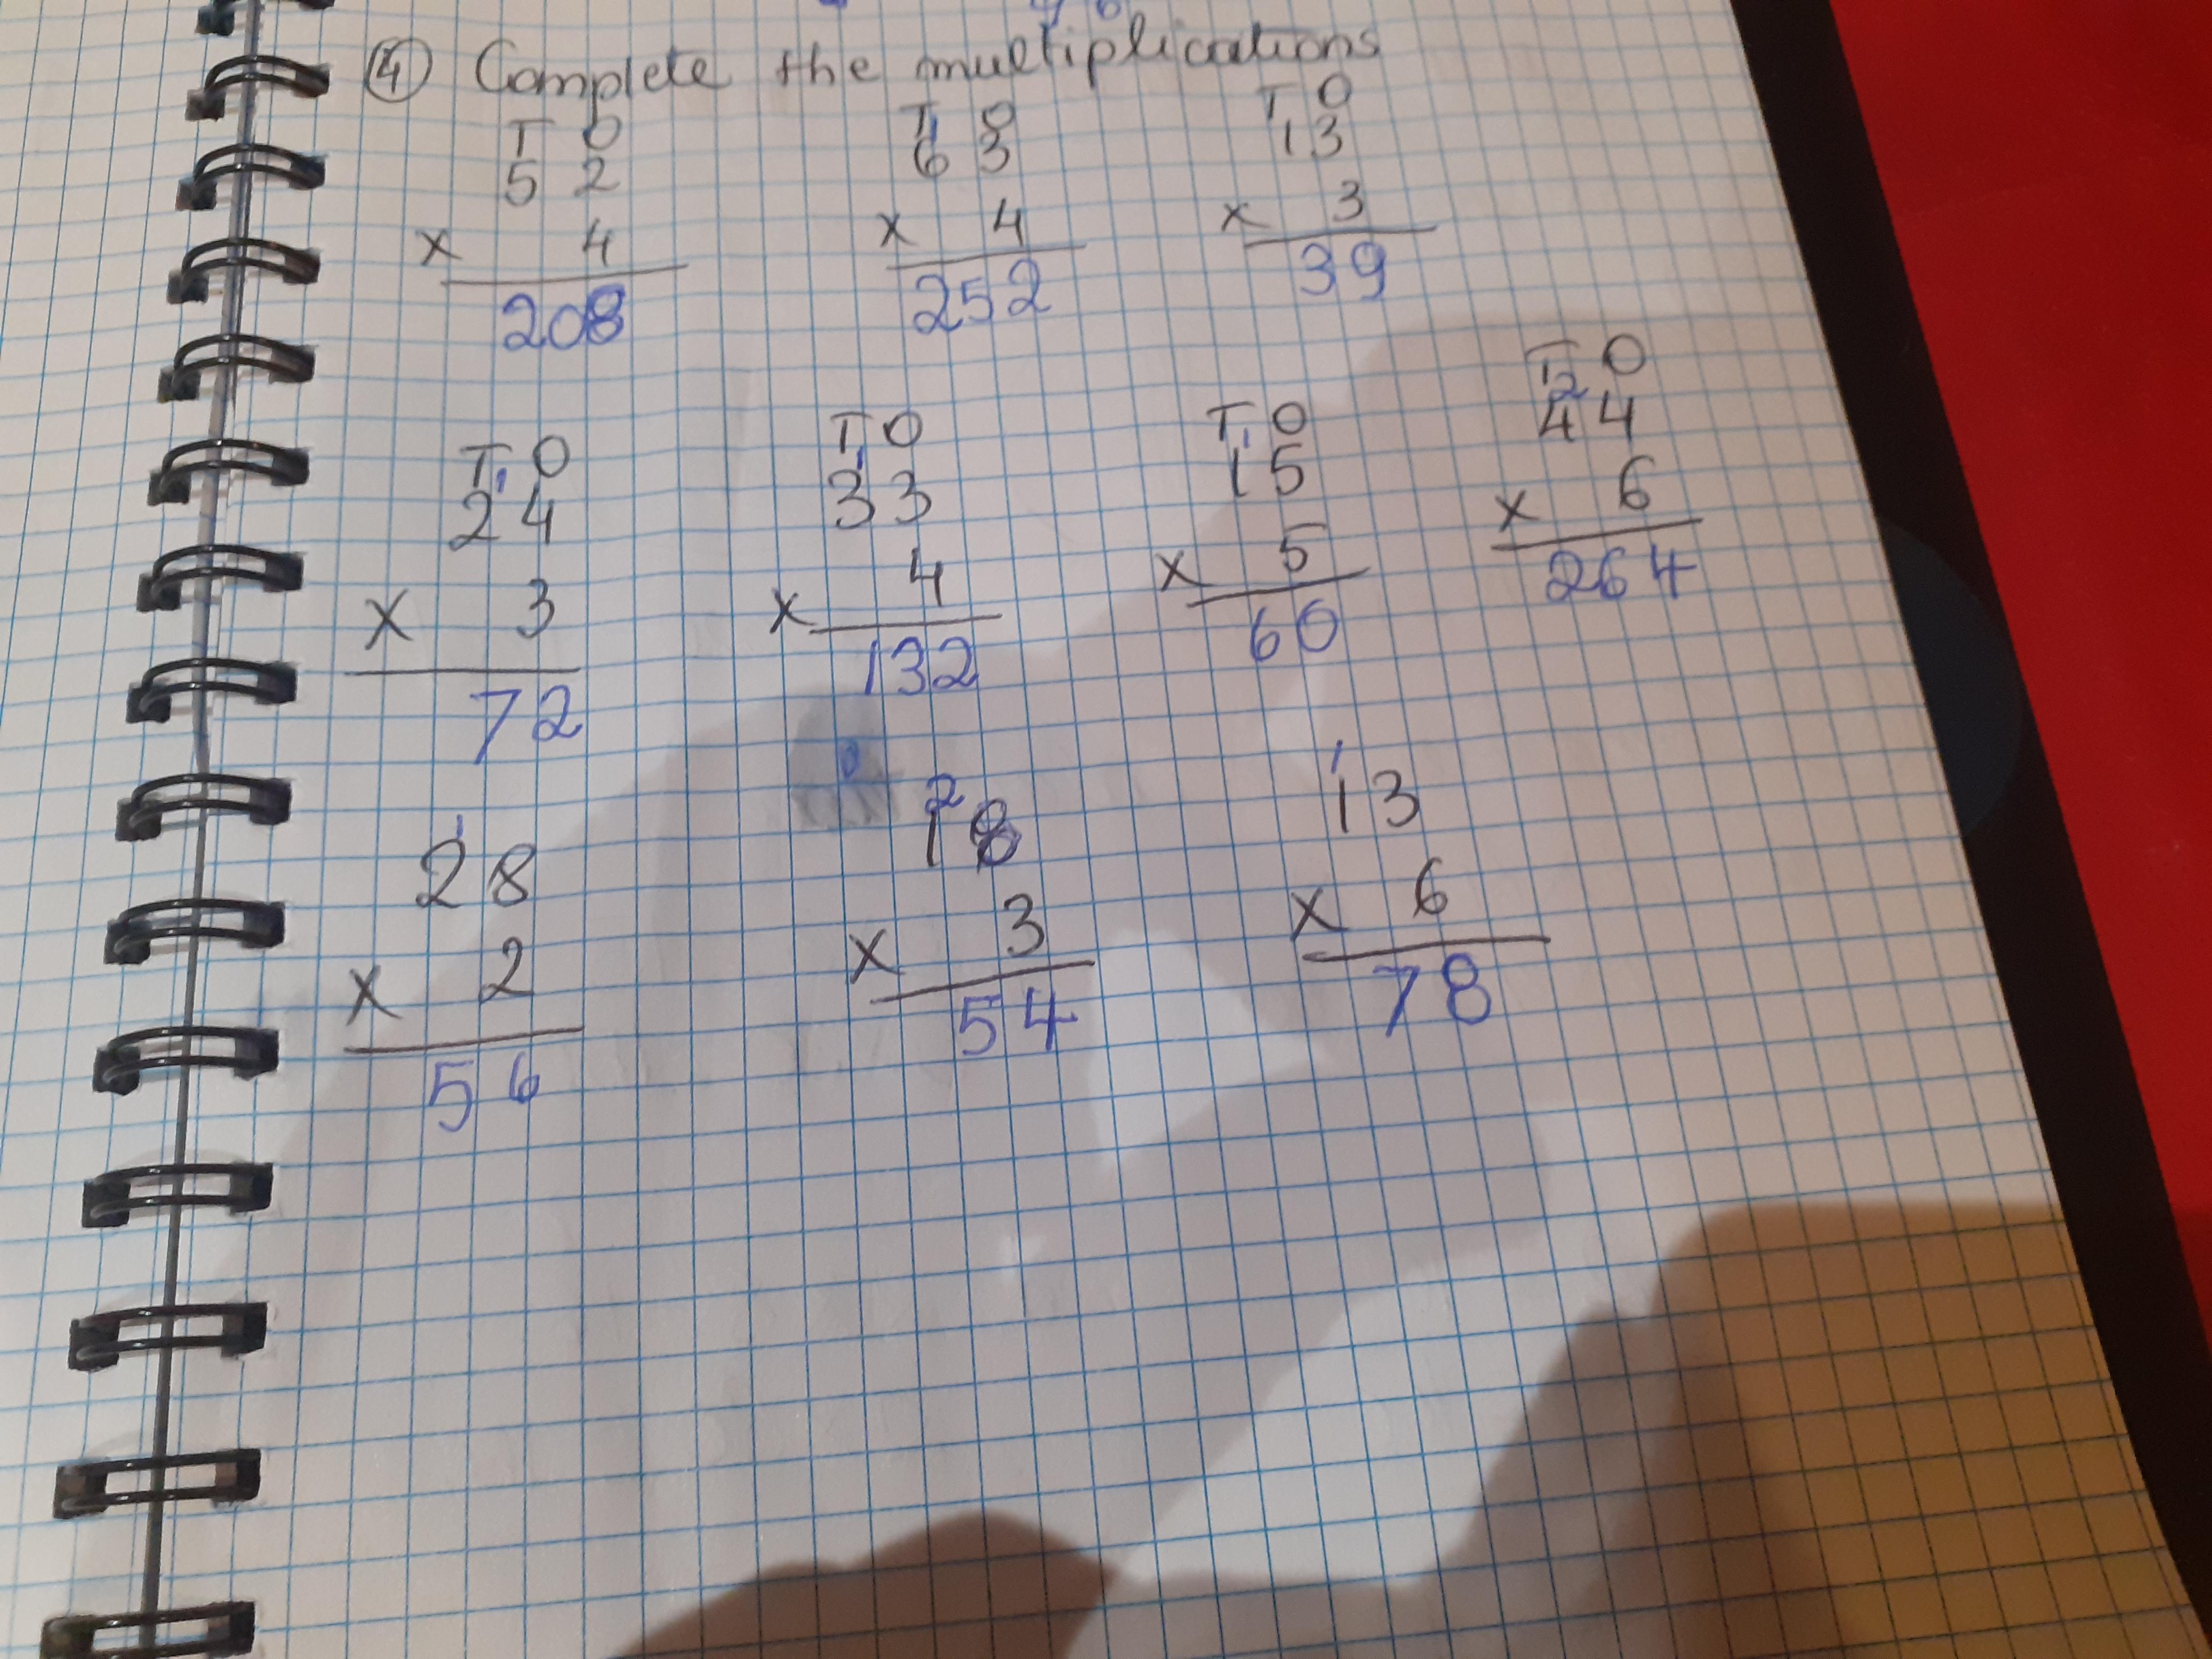 ④ Complete the multiplications
T O T O T O
5 2 6 3 13
x 4 x 4 x 3
208 252 39
T O T O T O T O
1 1 1 2
24 33 15 44
x 3 x 4 x 5 x 6
72 132 60 264
1 2 1
28 18 13
x 2 x 3 x 6
56 54 78